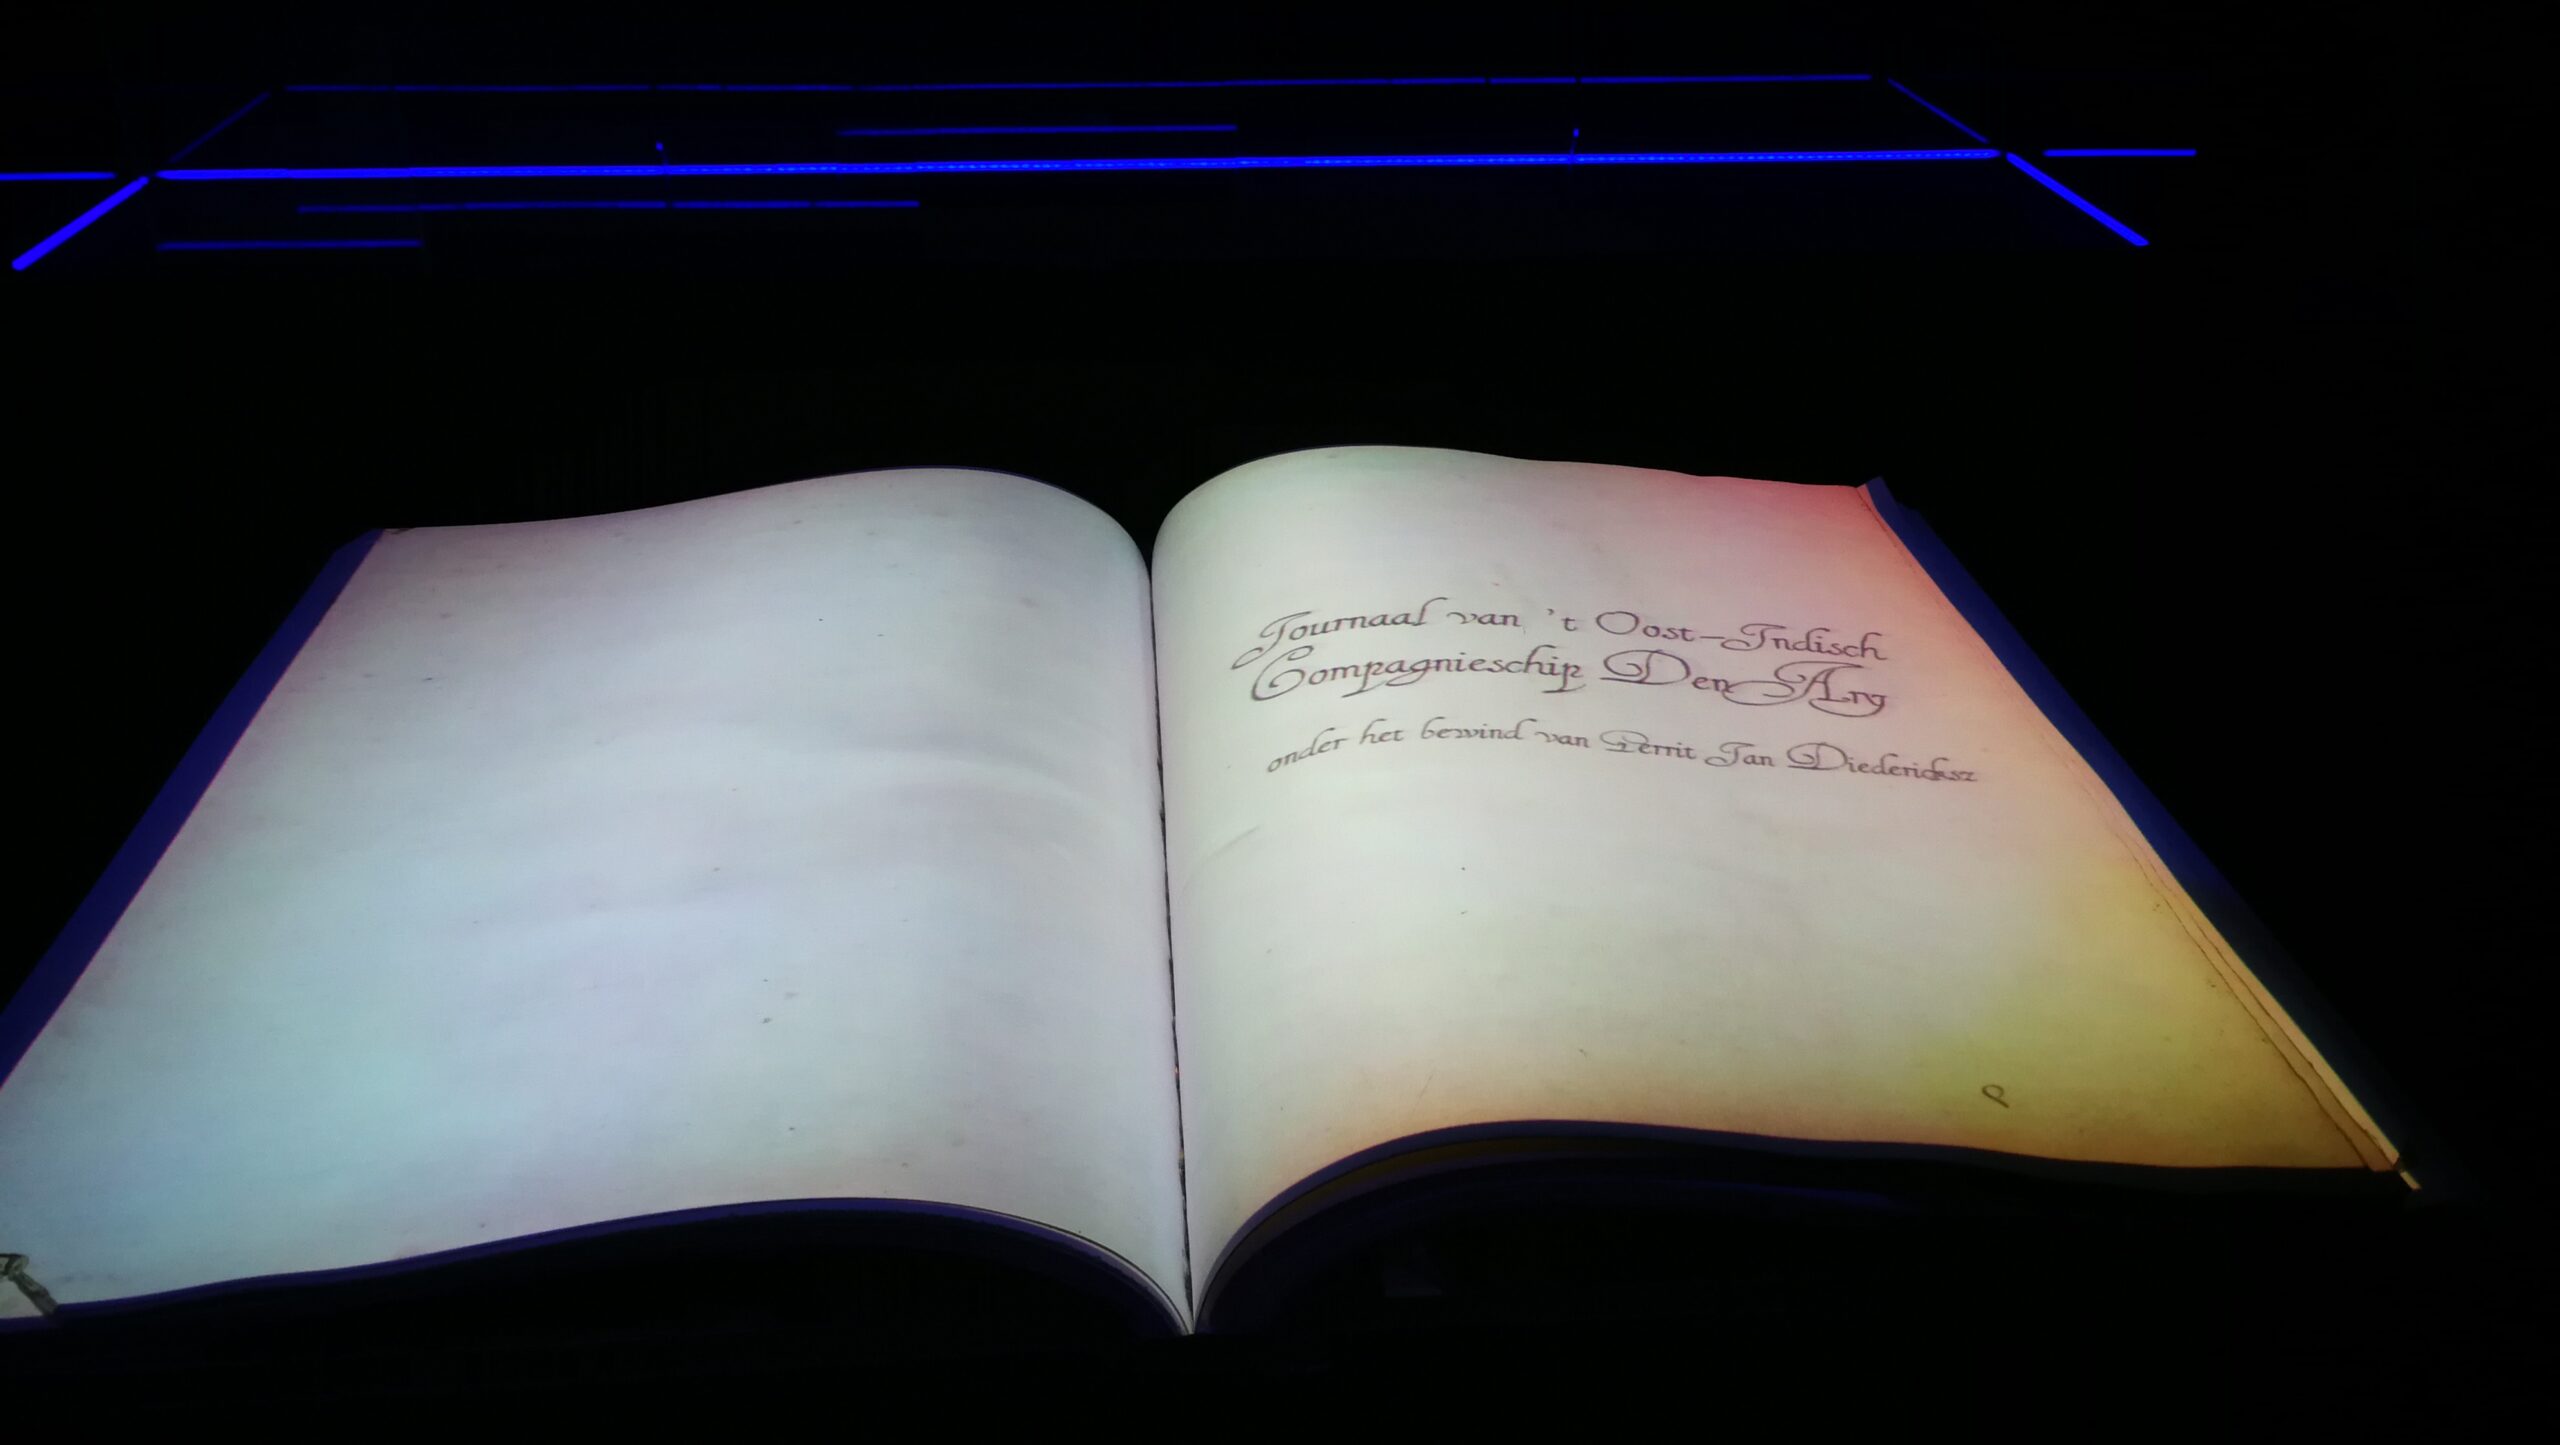 Journaal van 't Oost-Indisch
Compagnieschip Den Ary
onder het bewind van Gerrit Jan Diedericksz